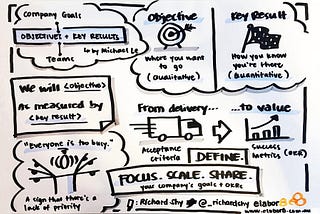 Company Goals
OBJECTIVES + KEY RESULTS
by Michael Le
Teams
Objective
where you want
to go
(Qualitative)
Key Result
How you know
you're there
(Quantitative)
We will <objective>
As measured by
<key result>
From delivery...
...to value
Acceptance
criteria
Success
metrics (OKR)
DEFINE.
FOCUS. SCALE. SHARE.
your company's goals + OKRs
"Everyone is too busy."
A sign that there's a
lack of priority
: Richard.Shy
@_richardshy
elabor8
www.elabor8.com.au